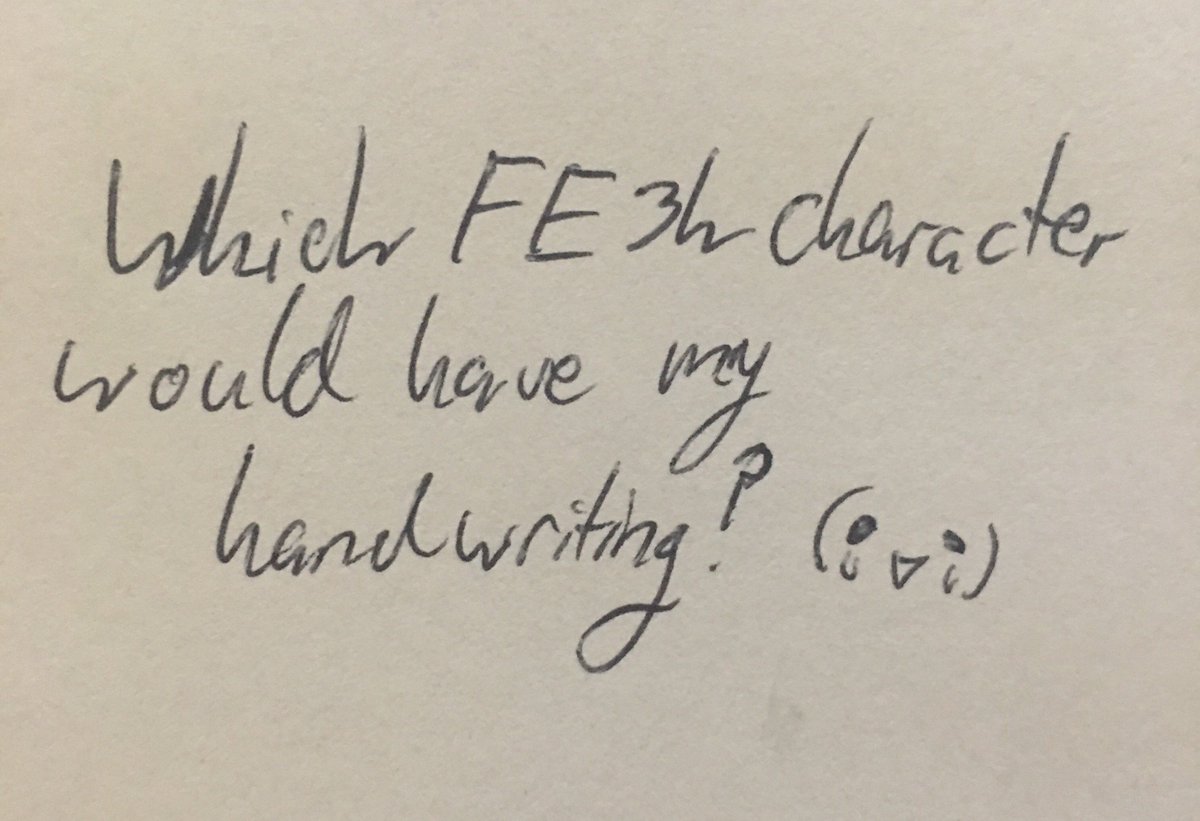 Which FE3h character
would have my
handwriting? (;▽;)